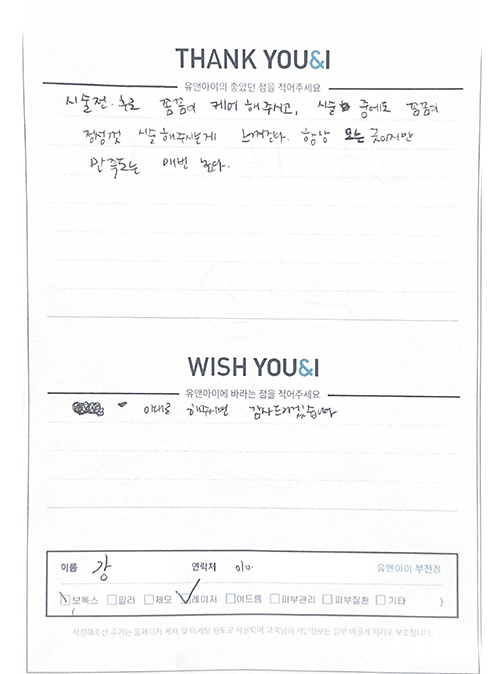 THANK YOU&I
유앤아이의 좋았던 점을 적어주세요
시술전·후로 꼼꼼히 케어 해주시고, 시술 중에도 꼼꼼히
정성껏 시술해주시는게 느껴진다. 항상 오는 곳이지만
만족도는 매번 높다.
WISH YOU&I
유앤아이에 바라는 점을 적어주세요
이대로 해주시면 감사드리겠습니다
이름 강 연락처 010. 유앤아이 부전점
보톡스 필러 제모 레이저 여드름 피부관리 피부질환 기타 )
작성해주신 후기는 홈페이지 게재 및 마케팅 용도로 사용되며 고객님의 개인정보는 일부 비공개 처리로 보호됩니다.